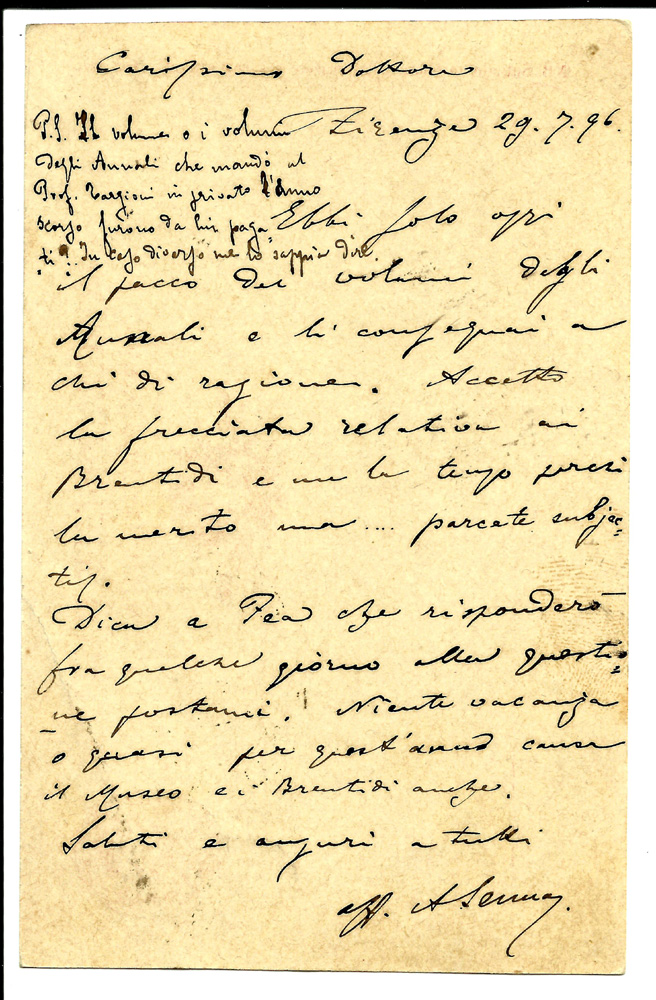 Carissimo Dottore
Firenze 29. 7. 96.
P.S. Il volume o i volumi
degli Annali che mandò al
Prof. Targioni in privato l'anno
scorso furono da lui paga
ti? In caso diverso me lo sappia dire.
Ebbi solo oggi
il pacco dei volumi degli
Annali e li consegnai a
chi di ragione. Accetto
la frecciata relativa ai
Brentidi e me la tengo perchè
la merito ma .... parcete subjec=
tis.
Dica a Fea che risponderò
fra qualche giorno alla questio=
ne postami. Niente vacanza
o quasi per quest'anno causa
il Museo e i Brentidi anche.
Saluti e auguri a tutti
aff. A Senna.